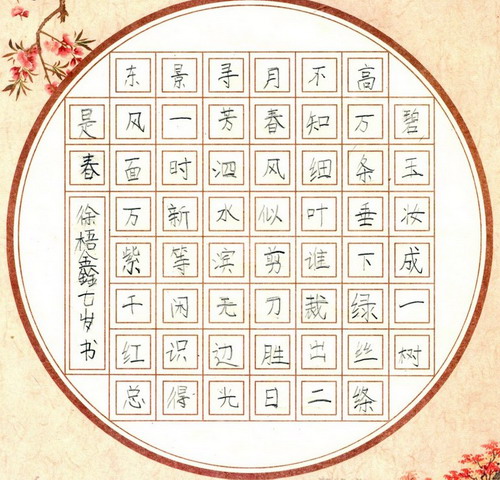 碧玉妆成一树
高万条垂下绿丝绦
不知细叶谁裁出二
月春风似剪刀胜日
寻芳泗水滨无边光
景一时新等闲识得
东风面万紫千红总
是春
徐梧鑫七岁书